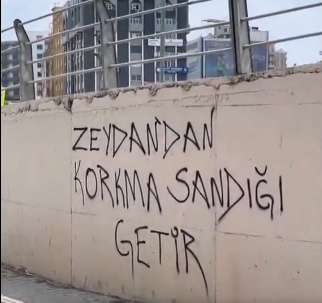 ZEYDAN'DAN
KORKMA SANDIĞI
GETİR